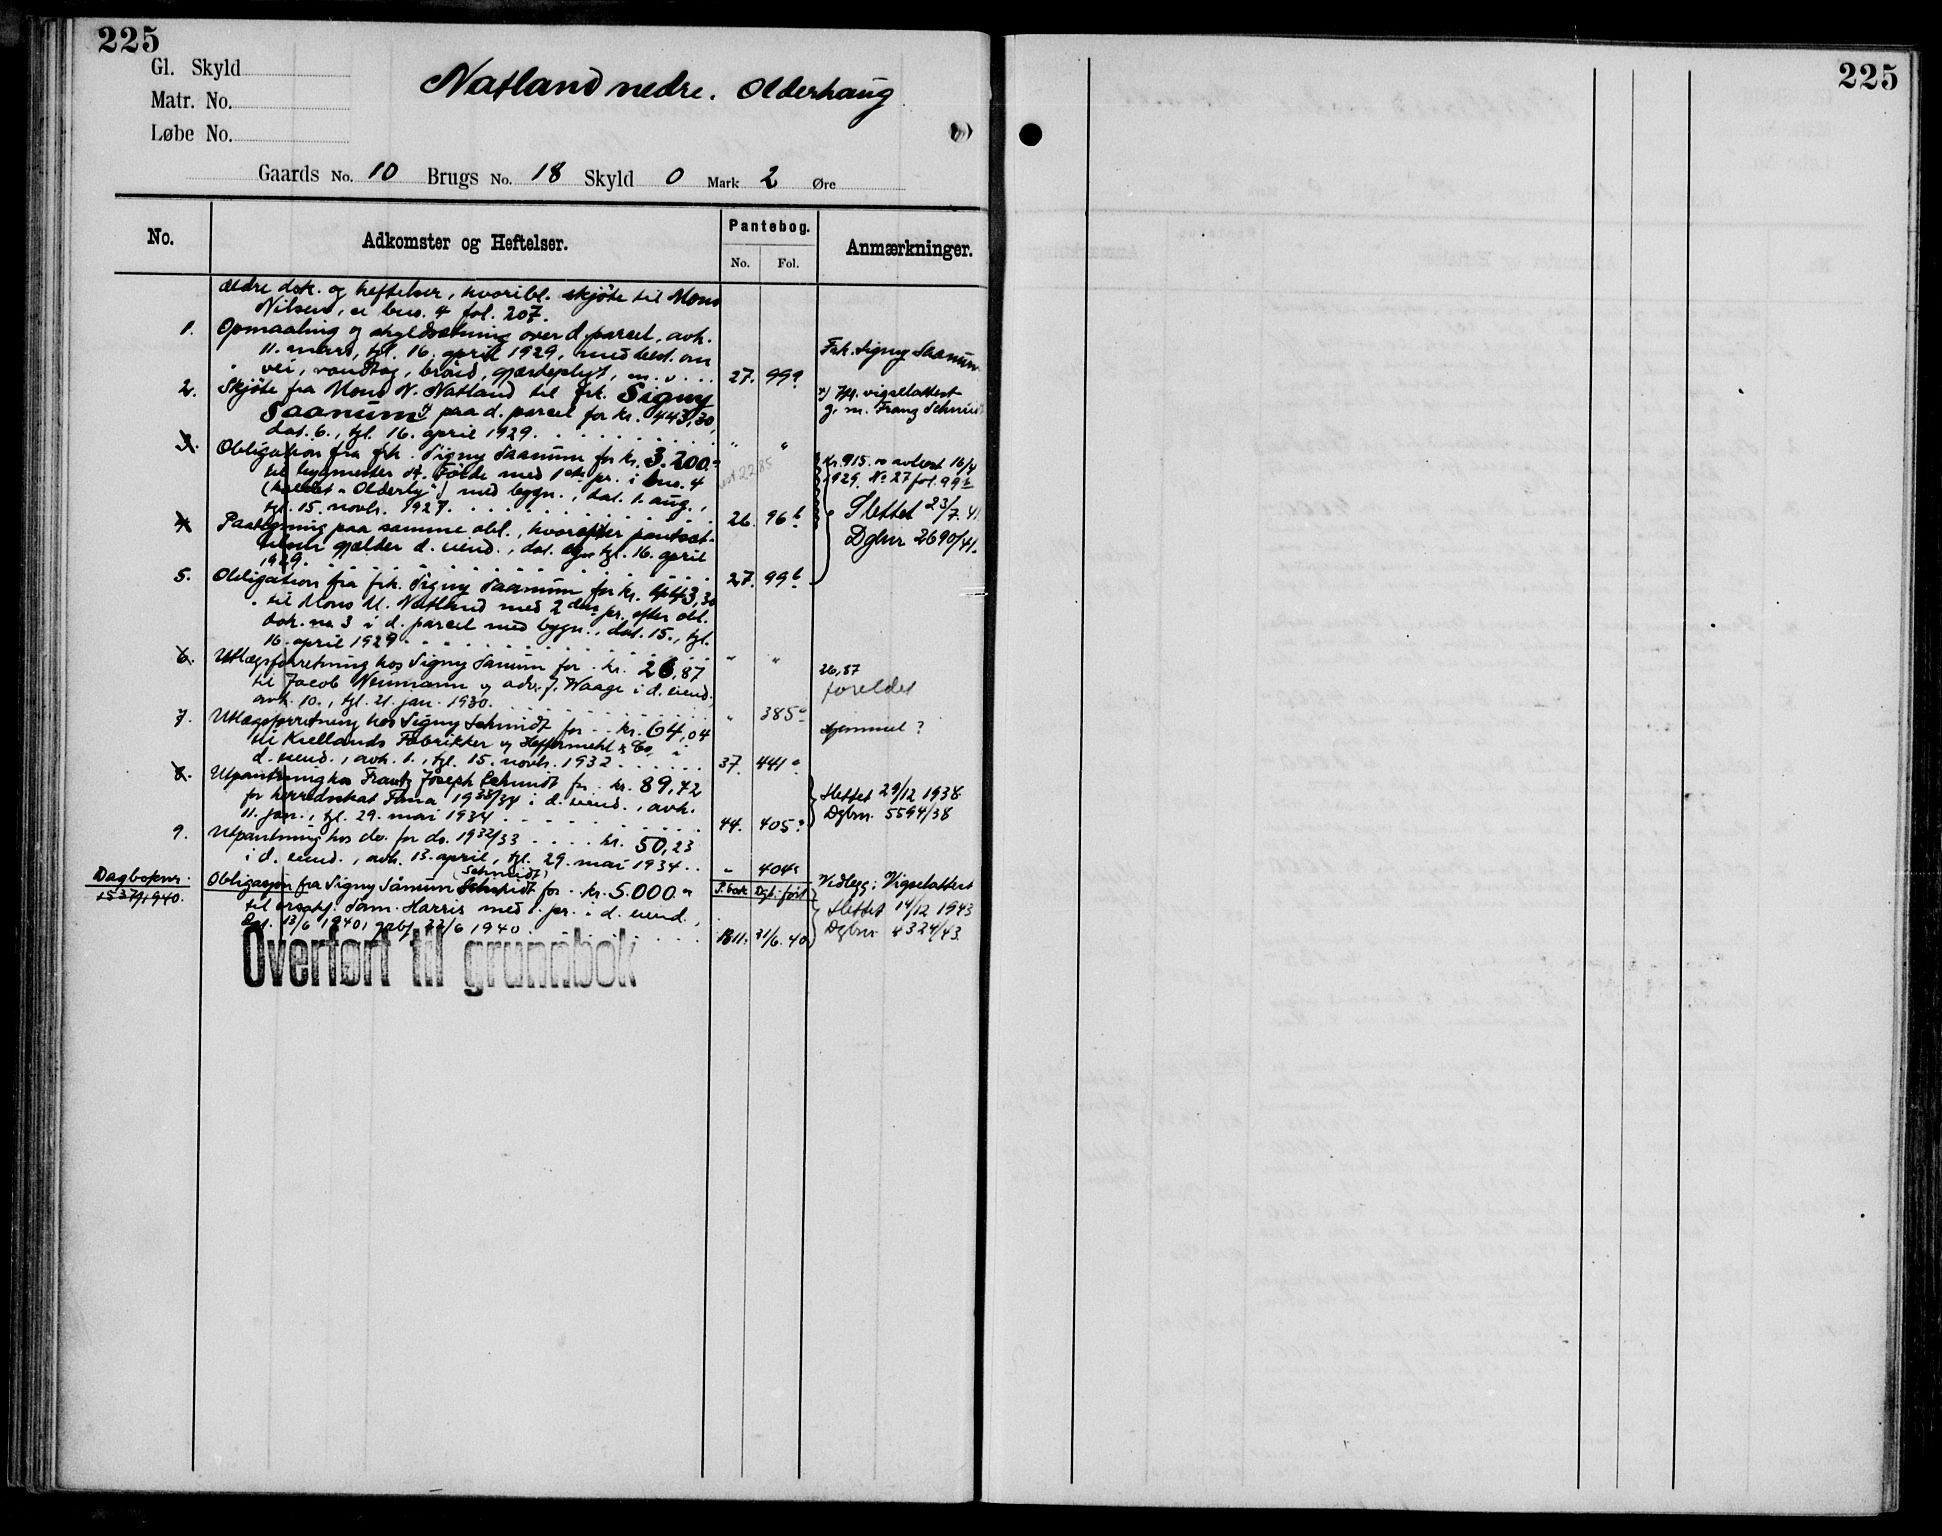 225
Gl. Skyld
Matr. No.
Løbe No.
Natland nedre. Olderhaug
Gaards No. 10 Brugs No. 18 Skyld 0 Mark 2 Øre
No.
Adkomster og Heftelser.
Pantebog.
No. Fol.
Anmærkninger.
Ældre dok. og heftelser, hvoribl. skjöte til Mons
Nilsen, ei bno. 4 fol. 207.
1. Opmaaling og skyldsætning over d. parcel, avh.
11. mars, tgl. 16. april 1929, med best. om
vei, vandtag, brönd, gjærdeplygt, m. v. 27. 99a
Frk. Signy Saanum
2. Skjöte fra Mons N. Natland til frk. Signy
Saanum x) paa d. parcel for kr. 443,30,
dat. 6., tgl. 16. april 1929. " "
x) Iflg. vigselattest
g. m. Franz Schmidt
3. Obligation fra frk. Signy Saanum for kr. 3.200.-
til bygmester Following med 1ste pr. i bno. 4
(kaldet "Olderly") med bygn., dat. 1. aug.,
tgl. 15. novbr. 1927. 26. 96b
Kr. 915.- avlest 16/4
1929. No 27 fol. 99b
Slettet 23/7. 41
Dgbnr 2690/41.
4. Paategning paa samme obl., hvorefter pantsæt-
telsen gjælder d. eiend., dat. og tgl. 16. april
1929. 27. 99b
5. Obligation fra frk. Signy Saanum for kr. 443,30
til Mons N. Natland med 2den pr. efter obl.
dok. no. 3 i d. parcel med bygn., dat. 15., tgl.
16. april 1929. " "
6. Utlægsforretning hos Signy Sanum for kr. 26,87
til Jacob Neumann og adv. J. Waage i d. eiend.,
avh. 10., tgl. 21. jan. 1930. " 385a
26,87
foreldet
7. Utlægsforretning hos Signy Schmidt for kr. 64,04
til Kiellands Fabrikker og Heffermehl & Co, i
d. eiend., avh. 1., tgl. 15. novbr. 1932 37. 441a
hjemmel?
8. Utpantning hos Frantz Joseph Schmidt for kr. 89,42
for herredsskat Fana 1933/34 i d. eiend., avh.
11. jan., tgl. 29. mai 1934 44. 405a
Slettet 29/12 1938
Dgbnr. 5594/38
9. Utpantning hos do. for do. 1932/33 kr. 50,23
i d. eiend., avh. 13. april, tgl. 29. mai 1934 " 404a
Dagboknr. 1537/1940.
(Schmidt)
Obligasjon fra Signy Sånum Schmidt for kr. 5.000.-
til Sam. Harris med 1. pr. i d. eiend.,
Dat. 13/6 1940, 22/6 1940.
P. bok Dgb. ført
B11. 21/6. 40
Vedlegg: Vigselattest
Slettet 14/12 1943
Dgbnr 4324/43.
Overført til grunnbok
225